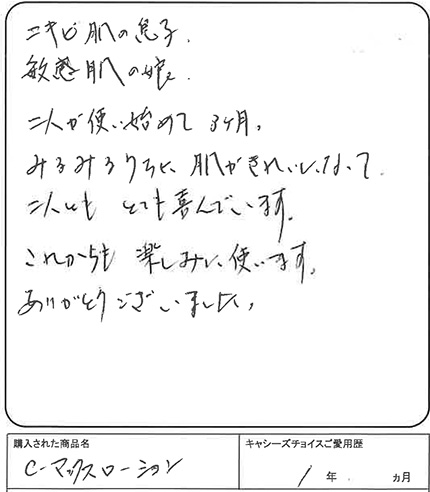 ニキビ肌の息子、
敏感肌の娘。
二人が使い始めて3ヶ月。
みるみるうちに、肌がきれいになって
二人とも とても喜んでいます。
これからも 楽しみに使います。
ありがとうございました。
購入された商品名
キャシーズチョイスご愛用歴
C-マックスローション
1年 ヵ月